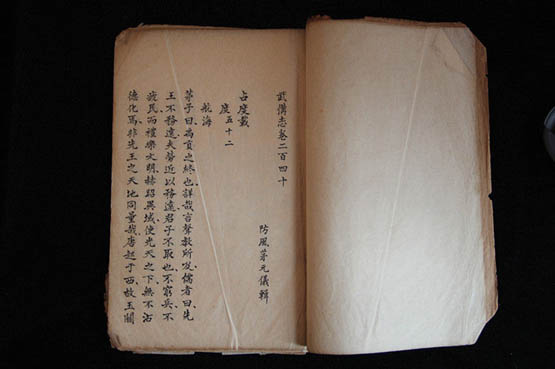 武備志卷二百四十
防風茅元儀輯
占度載
度五十二
航海
茅子曰禹貢之終也詳哉言聲教所及儒者曰先
王不務遠夫勞近以務遠君子不取也不窮兵不
疲民而禮樂文明赫昭異域使光天之下無不沾
德化焉非先王之天地同量哉唐起于西故玉關